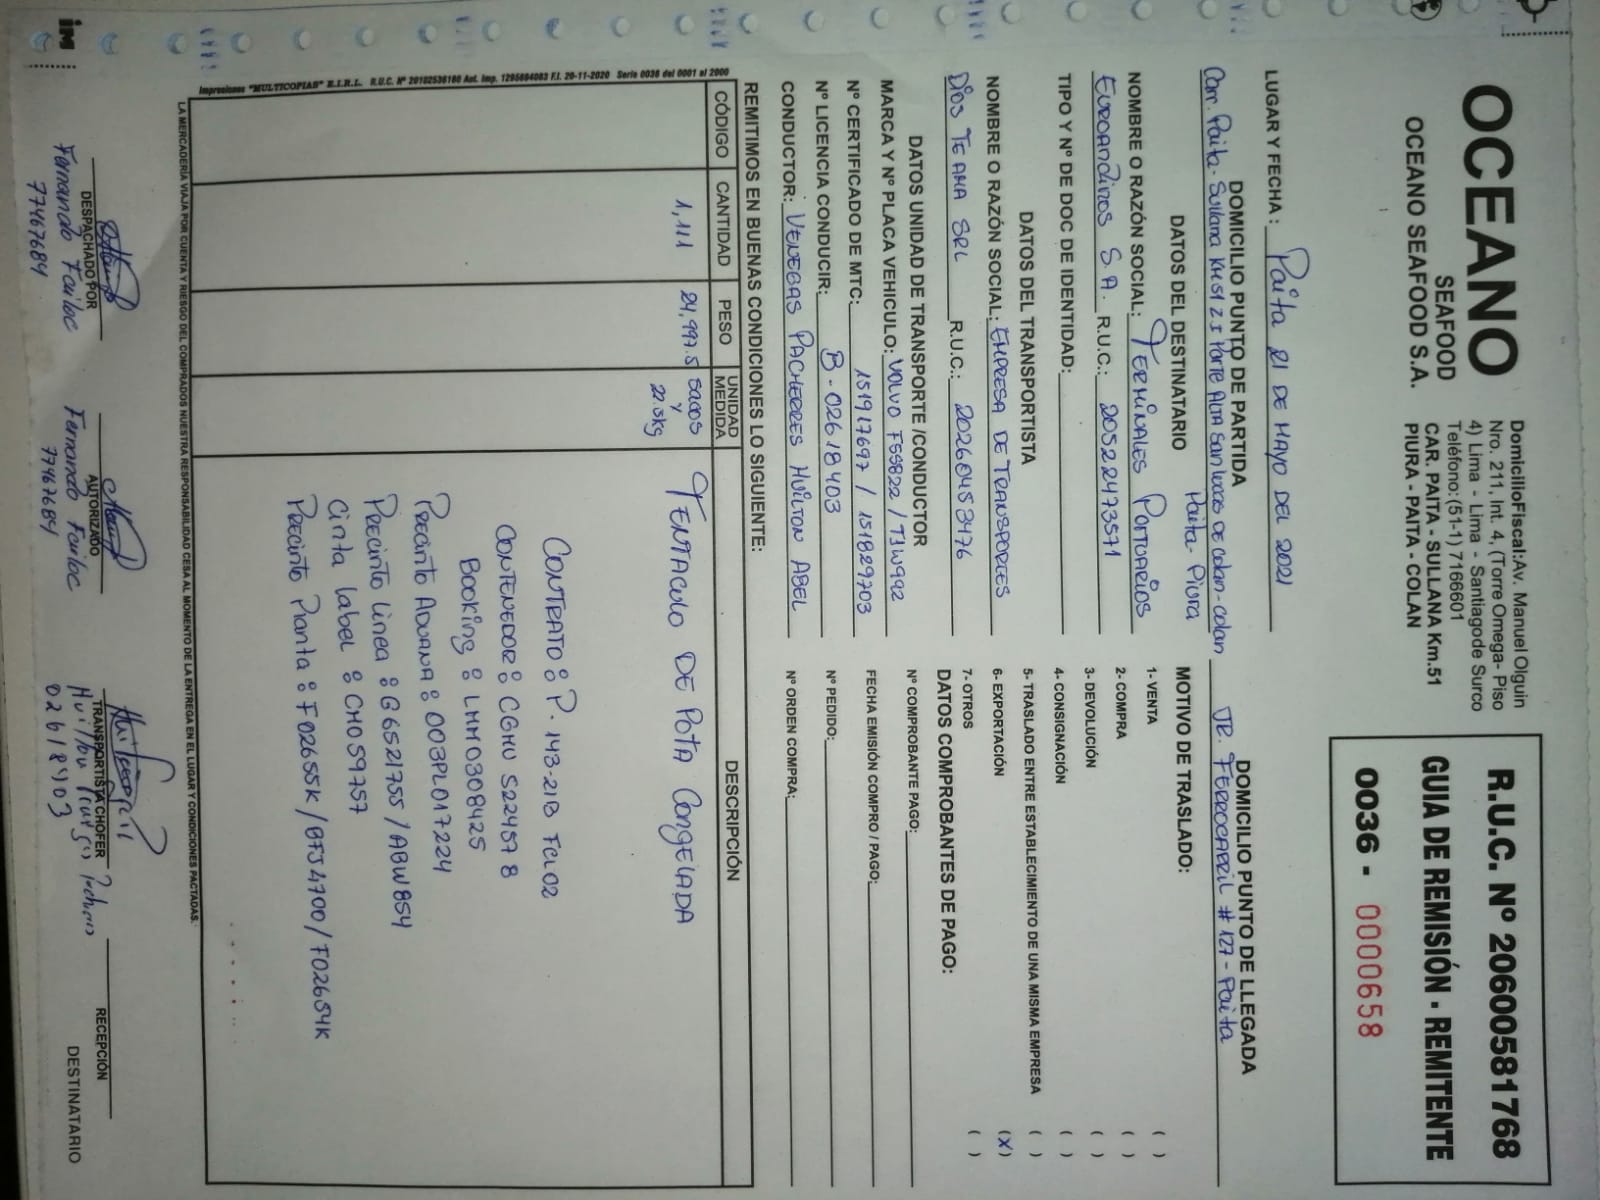 OCEANO
SEAFOOD
OCEANO SEAFOOD S.A.
DomicilioFiscal:Av. Manuel Olguin
Nro. 211, Int. 4, (Torre Omega- Piso
4) Lima - Lima - Santiagode Surco
Teléfono:(51-1) 7166601
CAR. PAITA - SULLANA Km.51
PIURA - PAITA - COLAN
R.U.C. Nº 20600581768
GUIA DE REMISIÓN - REMITENTE
0036 - 0000658
LUGAR Y FECHA: Paita 21 DE MAYO DEL 2021
DOMICILIO PUNTO DE PARTIDA
Carr. Paita- Sullana KM 51 ZI Parte Alta San Lucas DE Colan-Colan
Paita- Piura
DOMICILIO PUNTO DE LLEGADA
JR. FERROCARRIL # 127 - Paita
DATOS DEL DESTINATARIO
NOMBRE O RAZÓN SOCIAL: TERMINALES PORTUARIOS
EUROANDINOS S A. R.U.C.: 20522473571
TIPO Y Nº DE DOC DE IDENTIDAD:
DATOS DEL TRANSPORTISTA
NOMBRE O RAZÓN SOCIAL: EMPRESA DE TRANSPORTES
DIOS TE AMA SRL R.U.C.: 20260453476
DATOS UNIDAD DE TRANSPORTE /CONDUCTOR
MARCA Y Nº PLACA VEHICULO: VOLVO F5S822 / T3W992
Nº CERTIFICADO DE MTC: 151917697 / 151829703
Nº LICENCIA CONDUCIR: B-02618403
CONDUCTOR: VENEGAS PACHERRES HUILTON ABEL
MOTIVO DE TRASLADO:
1- VENTA ( )
2- COMPRA ( )
3- DEVOLUCIÓN ( )
4- CONSIGNACIÓN ( )
5- TRASLADO ENTRE ESTABLECIMIENTO DE UNA MISMA EMPRESA ( )
6- EXPORTACIÓN (X)
7- OTROS ( )
DATOS COMPROBANTES DE PAGO:
Nº COMPROBANTE PAGO:
FECHA EMISIÓN COMPRO / PAGO:
Nº PEDIDO:
Nº ORDEN COMPRA:
REMITIMOS EN BUENAS CONDICIONES LO SIGUIENTE:
CÓDIGO CANTIDAD PESO UNIDAD MEDIDA DESCRIPCIÓN
1,111 24,997.5 SACOS TENTACULO DE POTA CONGELADA
Y
22.5kg
CONTRATO: P. 143-21B FCL02
CONTENEDOR: CGMU 522457 8
Booking: LMM0308425
Precinto ADUANA: 003PL017224
Precinto linea: G6521755 / ABW854
Cinta label: CM059757
Precinto Planta: F02655K / BFJ4700 / F02654K
Impresiones "MULTICOPIAS" E.I.R.L. R.U.C. Nº 20102536160 Aut. Imp. 1295684083 F.I. 20-11-2020 Serie 0036 del 0001 al 2000
LA MERCADERÍA VIAJA POR CUENTA Y RIESGO DEL COMPRADOS NUESTRA RESPONSABILIDAD CESA AL MOMENTO DE LA ENTREGA EN EL LUGAR Y CONDICIONES PACTADAS.
DESPACHADO POR
Fernando Failoc
77467684
AUTORIZADO
Fernando Failoc
77467684
TRANSPORTISTA CHOFER
02618403
RECEPCIÓN
DESTINATARIO